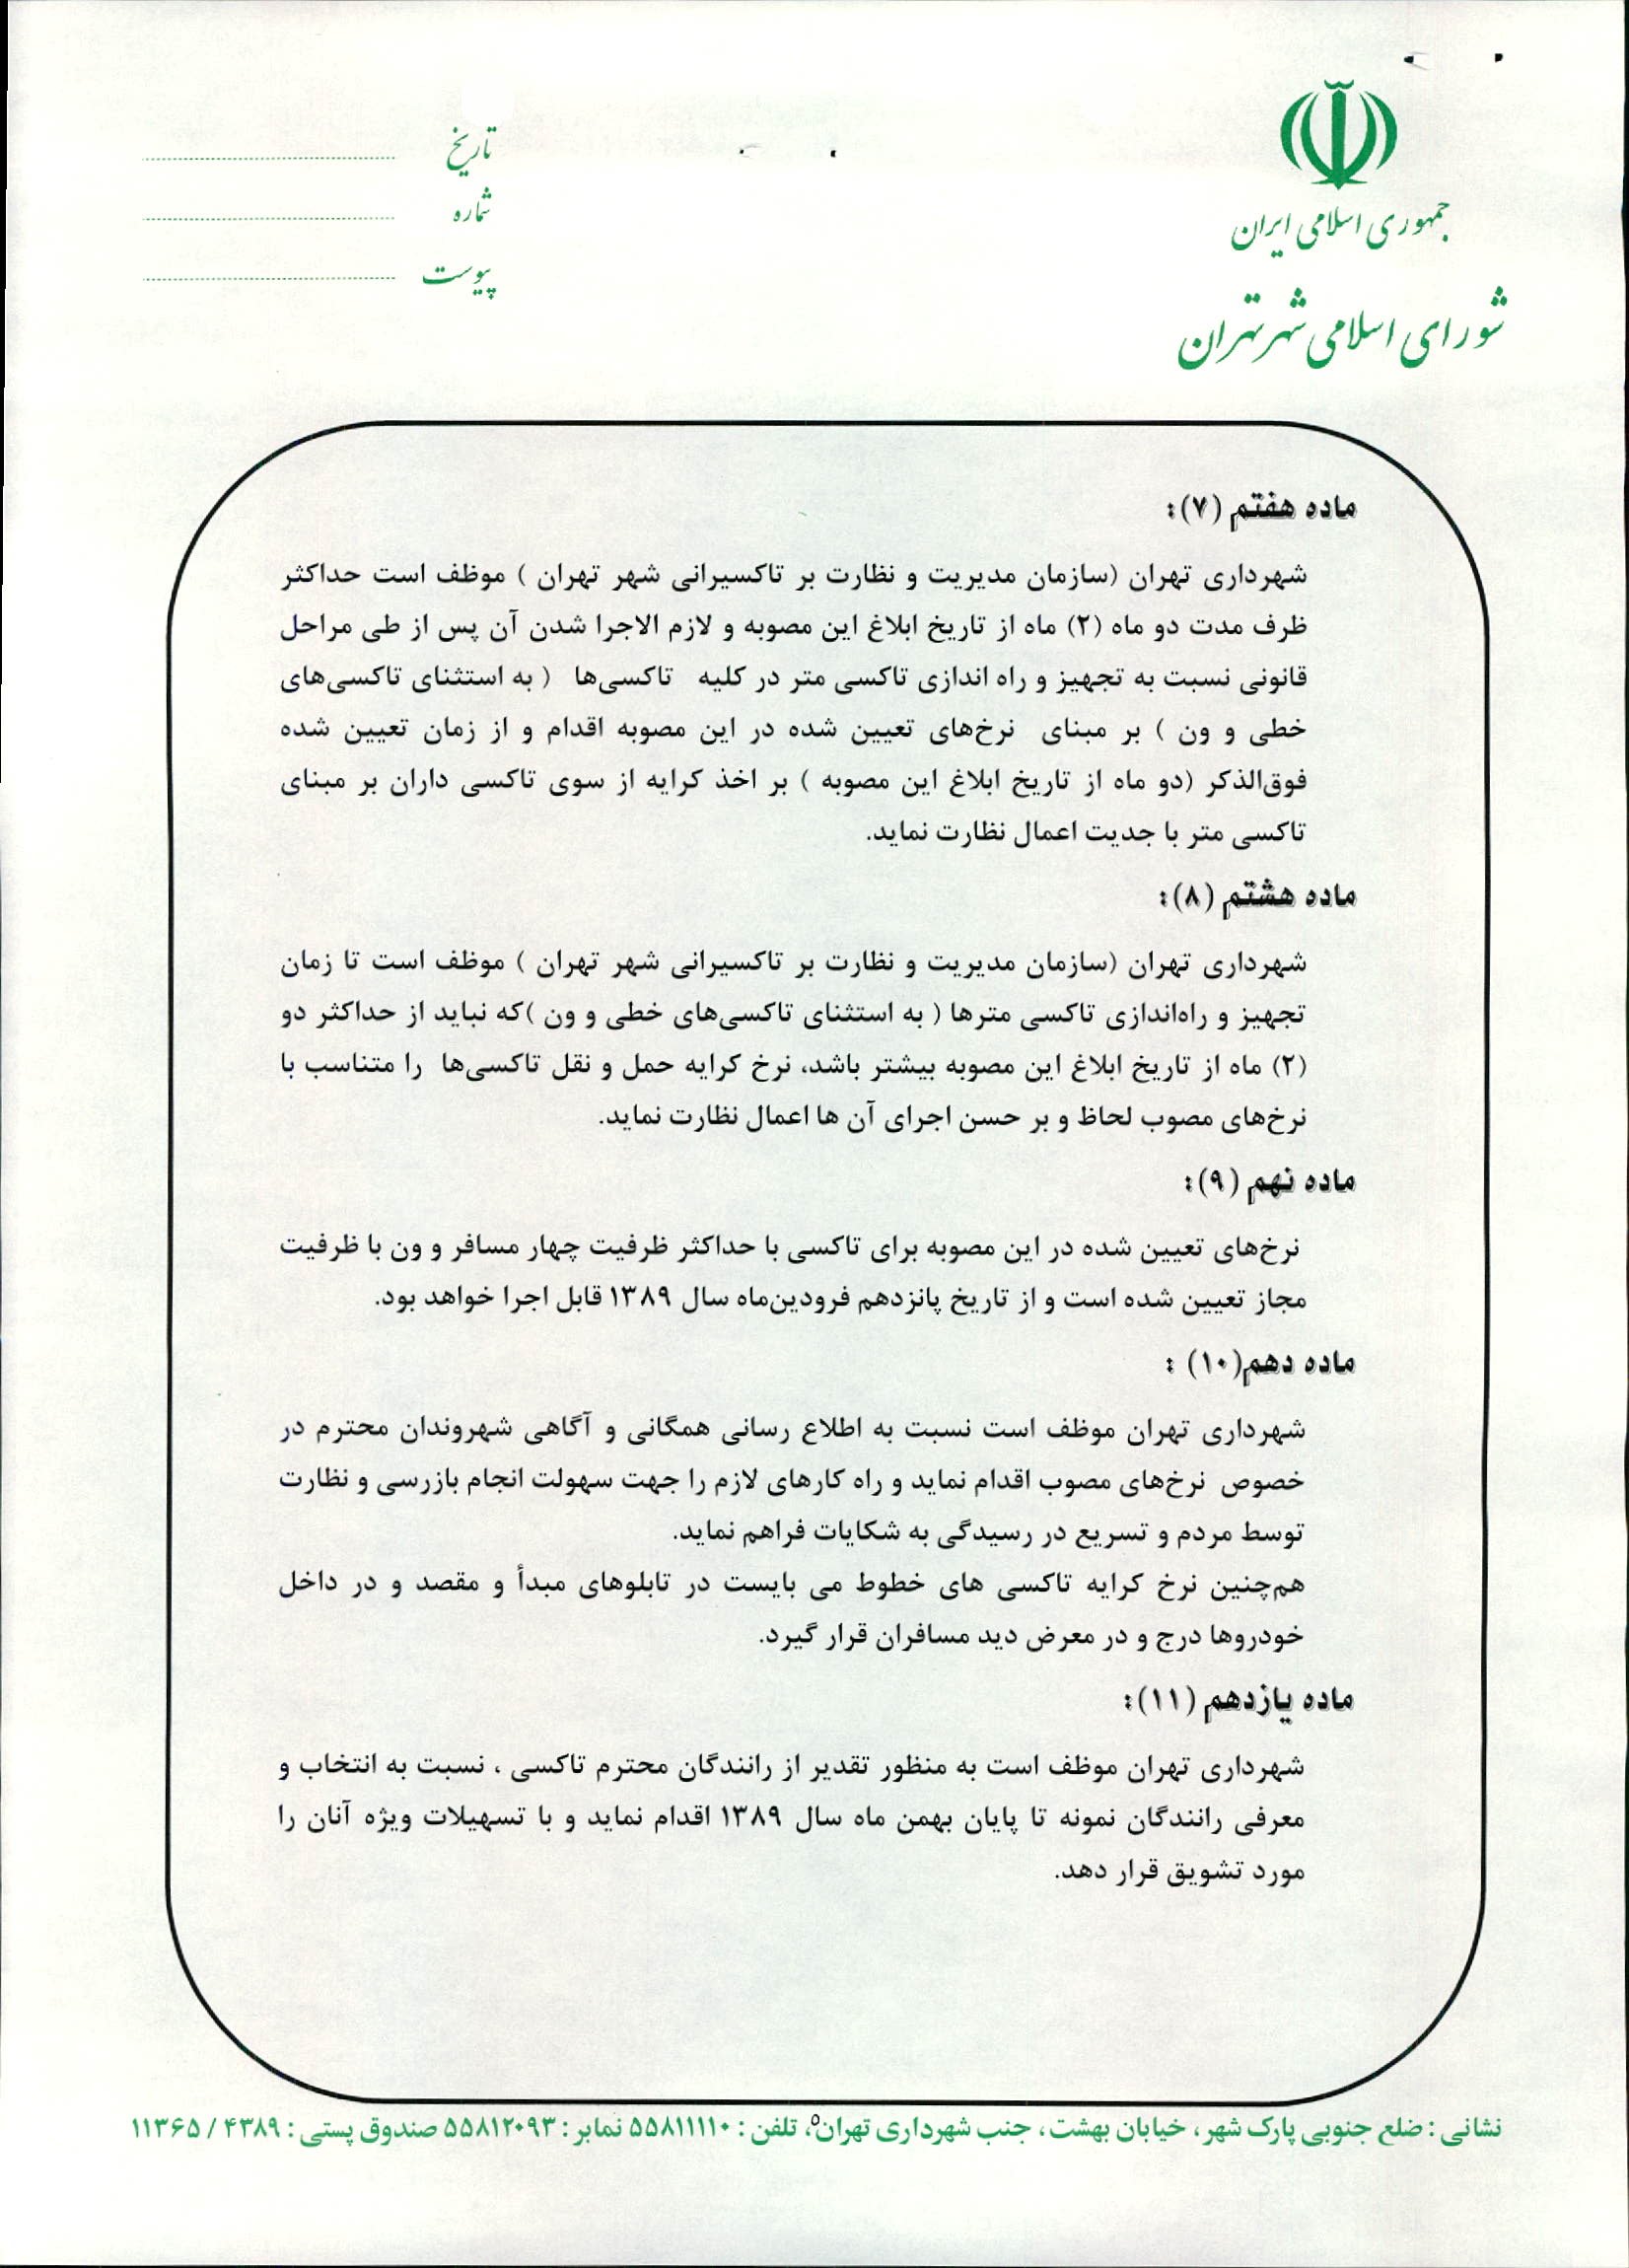 جمهوری اسلامی ایران
شورای اسلامی شهر تهران
تاریخ
شماره
پیوست
ماده هفتم (۷):
شهرداری تهران (سازمان مدیریت و نظارت بر تاکسیرانی شهر تهران ) موظف است حداکثر
ظرف مدت دو ماه (۲) ماه از تاریخ ابلاغ این مصوبه و لازم الاجرا شدن آن پس از طی مراحل
قانونی نسبت به تجهیز و راه اندازی تاکسی متر در کلیه تاکسی‌ها ( به استثنای تاکسی‌های
خطی و ون ) بر مبنای نرخ‌های تعیین شده در این مصوبه اقدام و از زمان تعیین شده
فوق‌الذکر (دو ماه از تاریخ ابلاغ این مصوبه ) بر اخذ کرایه از سوی تاکسی داران بر مبنای
تاکسی متر با جدیت اعمال نظارت نماید.
ماده هشتم (۸):
شهرداری تهران (سازمان مدیریت و نظارت بر تاکسیرانی شهر تهران ) موظف است تا زمان
تجهیز و راه‌اندازی تاکسی مترها ( به استثنای تاکسی‌های خطی و ون )که نباید از حداکثر دو
(۲) ماه از تاریخ ابلاغ این مصوبه بیشتر باشد، نرخ کرایه حمل و نقل تاکسی‌ها را متناسب با
نرخ‌های مصوب لحاظ و بر حسن اجرای آن ها اعمال نظارت نماید.
ماده نهم (۹):
نرخ‌های تعیین شده در این مصوبه برای تاکسی با حداکثر ظرفیت چهار مسافر و ون با ظرفیت
مجاز تعیین شده است و از تاریخ پانزدهم فرودین‌ماه سال ۱۳۸۹ قابل اجرا خواهد بود.
ماده دهم(۱۰) :
شهرداری تهران موظف است نسبت به اطلاع رسانی همگانی و آگاهی شهروندان محترم در
خصوص نرخ‌های مصوب اقدام نماید و راه کارهای لازم را جهت سهولت انجام بازرسی و نظارت
توسط مردم و تسریع در رسیدگی به شکایات فراهم نماید.
هم‌چنین نرخ کرایه تاکسی های خطوط می بایست در تابلوهای مبدأ و مقصد و در داخل
خودروها درج و در معرض دید مسافران قرار گیرد.
ماده یازدهم (۱۱):
شهرداری تهران موظف است به منظور تقدیر از رانندگان محترم تاکسی ، نسبت به انتخاب و
معرفی رانندگان نمونه تا پایان بهمن ماه سال ۱۳۸۹ اقدام نماید و با تسهیلات ویژه آنان را
مورد تشویق قرار دهد.
۵
نشانی : ضلع جنوبی پارک شهر ، خیابان بهشت ، جنب شهرداری تهران، تلفن : ۵۵۸۱۱۱۱۰ نمابر : ۵۵۸۱۲۰۹۳ صندوق پستی : ۴۳۸۹ / ۱۱۳۶۵